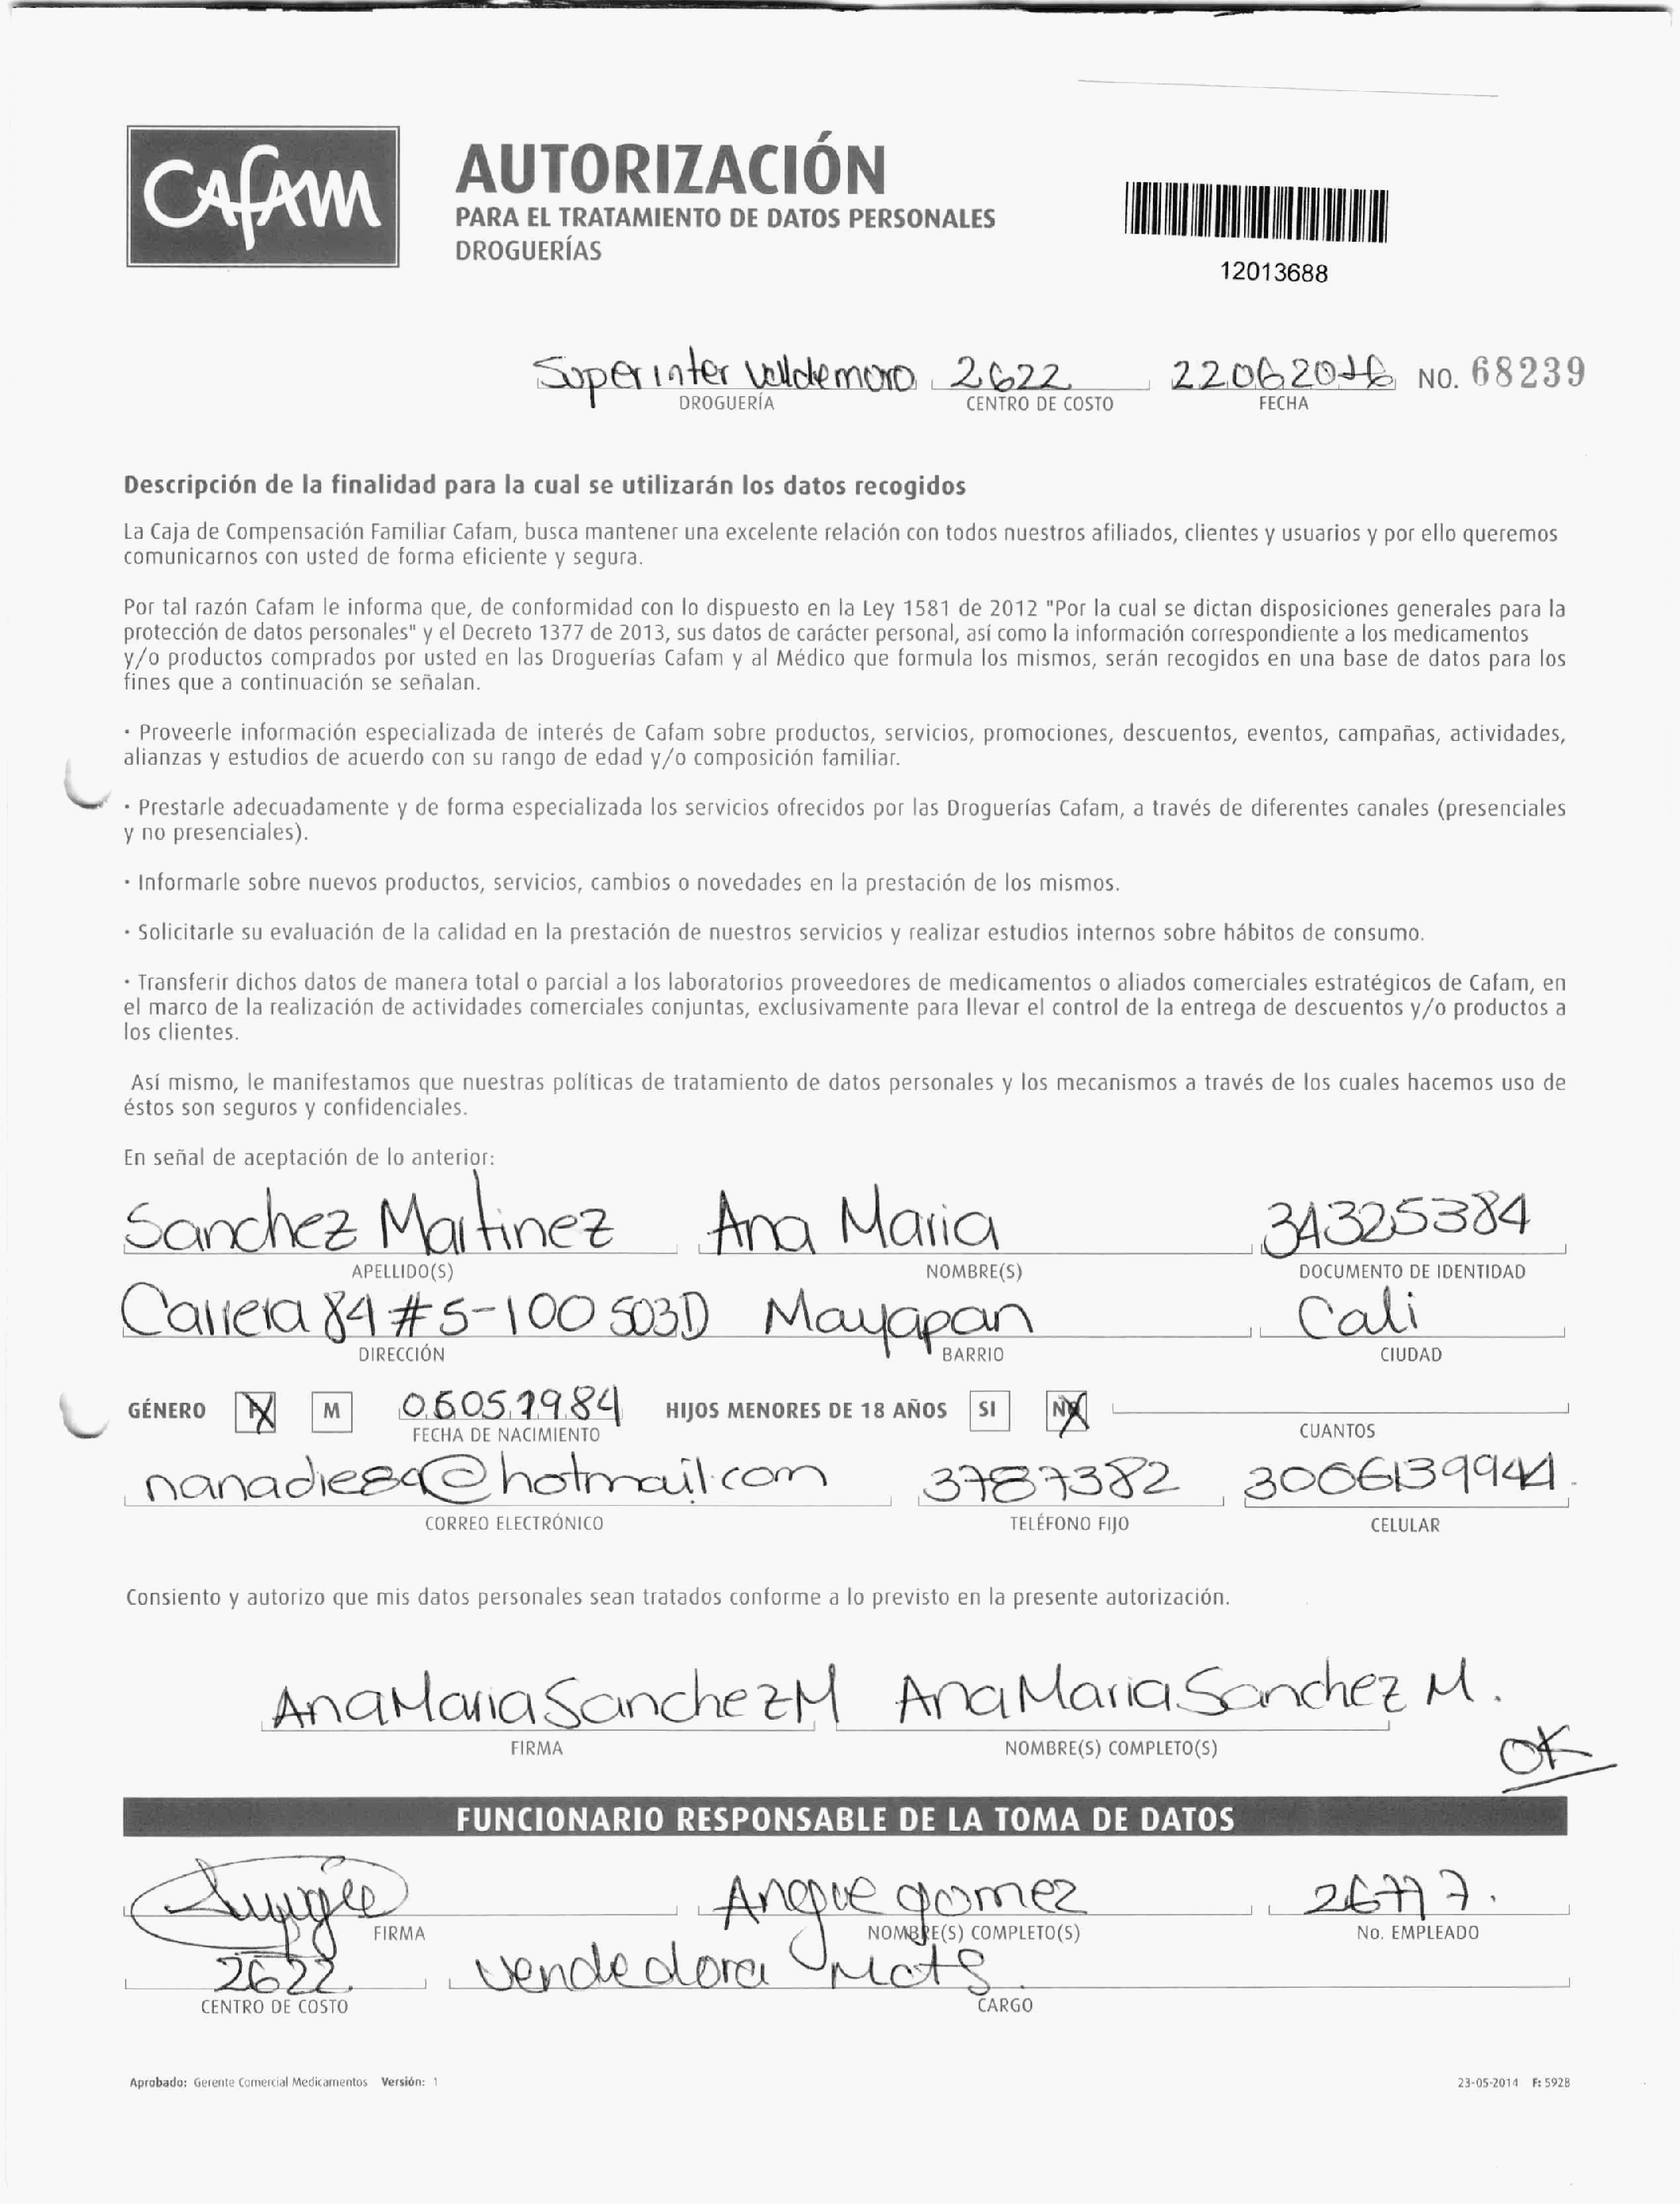 CAFAM
AUTORIZACIÓN
PARA EL TRATAMIENTO DE DATOS PERSONALES
DROGUERÍAS
12013688
Superinter Valldemoro 2622 22062016 NO. 68239
DROGUERÍA CENTRO DE COSTO FECHA
Descripción de la finalidad para la cual se utilizarán los datos recogidos
La Caja de Compensación Familiar Cafam, busca mantener una excelente relación con todos nuestros afiliados, clientes y usuarios y por ello queremos
comunicarnos con usted de forma eficiente y segura.
Por tal razón Cafam le informa que, de conformidad con lo dispuesto en la Ley 1581 de 2012 "Por la cual se dictan disposiciones generales para la
protección de datos personales" y el Decreto 1377 de 2013, sus datos de carácter personal, así como la información correspondiente a los medicamentos
y/o productos comprados por usted en las Droguerías Cafam y al Médico que formula los mismos, serán recogidos en una base de datos para los
fines que a continuación se señalan.
· Proveerle información especializada de interés de Cafam sobre productos, servicios, promociones, descuentos, eventos, campañas, actividades,
alianzas y estudios de acuerdo con su rango de edad y/o composición familiar.
· Prestarle adecuadamente y de forma especializada los servicios ofrecidos por las Droguerías Cafam, a través de diferentes canales (presenciales
y no presenciales).
· Informarle sobre nuevos productos, servicios, cambios o novedades en la prestación de los mismos.
· Solicitarle su evaluación de la calidad en la prestación de nuestros servicios y realizar estudios internos sobre hábitos de consumo.
· Transferir dichos datos de manera total o parcial a los laboratorios proveedores de medicamentos o aliados comerciales estratégicos de Cafam, en
el marco de la realización de actividades comerciales conjuntas, exclusivamente para llevar el control de la entrega de descuentos y/o productos a
los clientes.
Así mismo, le manifestamos que nuestras políticas de tratamiento de datos personales y los mecanismos a través de los cuales hacemos uso de
éstos son seguros y confidenciales.
En señal de aceptación de lo anterior:
Sanchez Martinez Ana Maria 34325384
APELLIDO(S) NOMBRE(S) DOCUMENTO DE IDENTIDAD
Carrera 84 # 5-100 503D Mayapan Cali
DIRECCIÓN BARRIO CIUDAD
GÉNERO M 06051984 HIJOS MENORES DE 18 AÑOS SI NO
FECHA DE NACIMIENTO CUANTOS
3787382 3006139944.
CORREO ELECTRÓNICO TELÉFONO FIJO CELULAR
Consiento y autorizo que mis datos personales sean tratados conforme a lo previsto en la presente autorización.
Ana Maria Sanchez M Ana Maria Sanchez M.
FIRMA NOMBRE(S) COMPLETO(S)
OK
FUNCIONARIO RESPONSABLE DE LA TOMA DE DATOS
gomez
FIRMA NOMBRE(S) COMPLETO(S) No. EMPLEADO
2622 vendedora
CENTRO DE COSTO CARGO
Aprobado: Gerente Comercial Medicamentos Versión: 1 23-05-2014 F: 5928